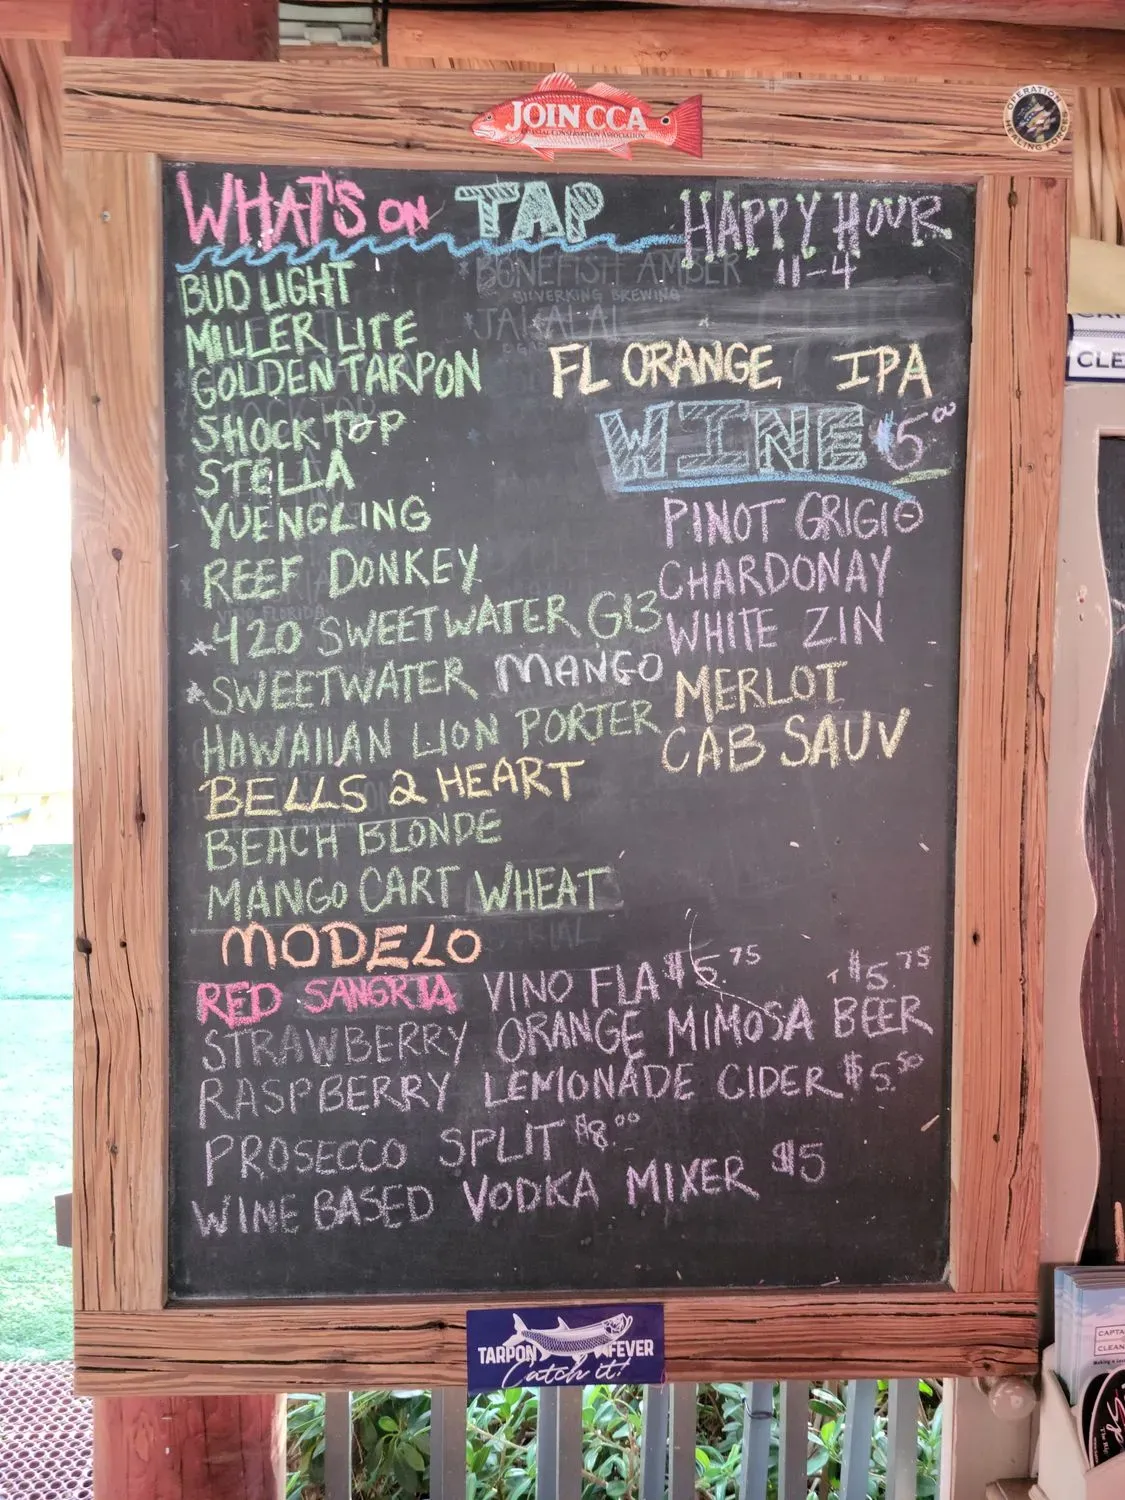 JOIN CCA
COASTAL CONSERVATION ASSOCIATION
OPERATION
WHAT'S ON TAP
HAPPY HOUR
11-4
BONEFISH AMBER
SILVERKING BREWING
JAI ALAI
BUD LIGHT
MILLER LITE
GOLDEN TARPON
SHOCK TOP
STELLA
YUENGLING
REEF DONKEY
*420 SWEETWATER G13
*SWEETWATER MANGO
HAWAIIAN LION PORTER
BELLS 2 HEART
BEACH BLONDE
MANGO CART WHEAT
MODELO
FL ORANGE IPA
WINE $5.00
PINOT GRIGIO
CHARDONAY
WHITE ZIN
MERLOT
CAB SAUV
RED SANGRIA VINO FLA $6.75 $5.75
STRAWBERRY ORANGE MIMOSA BEER
RASPBERRY LEMONADE CIDER $5.50
PROSECCO SPLIT $8.00
WINE BASED VODKA MIXER $5
TARPON FEVER
Catch it!
CLE
CAPTA
CLEAN